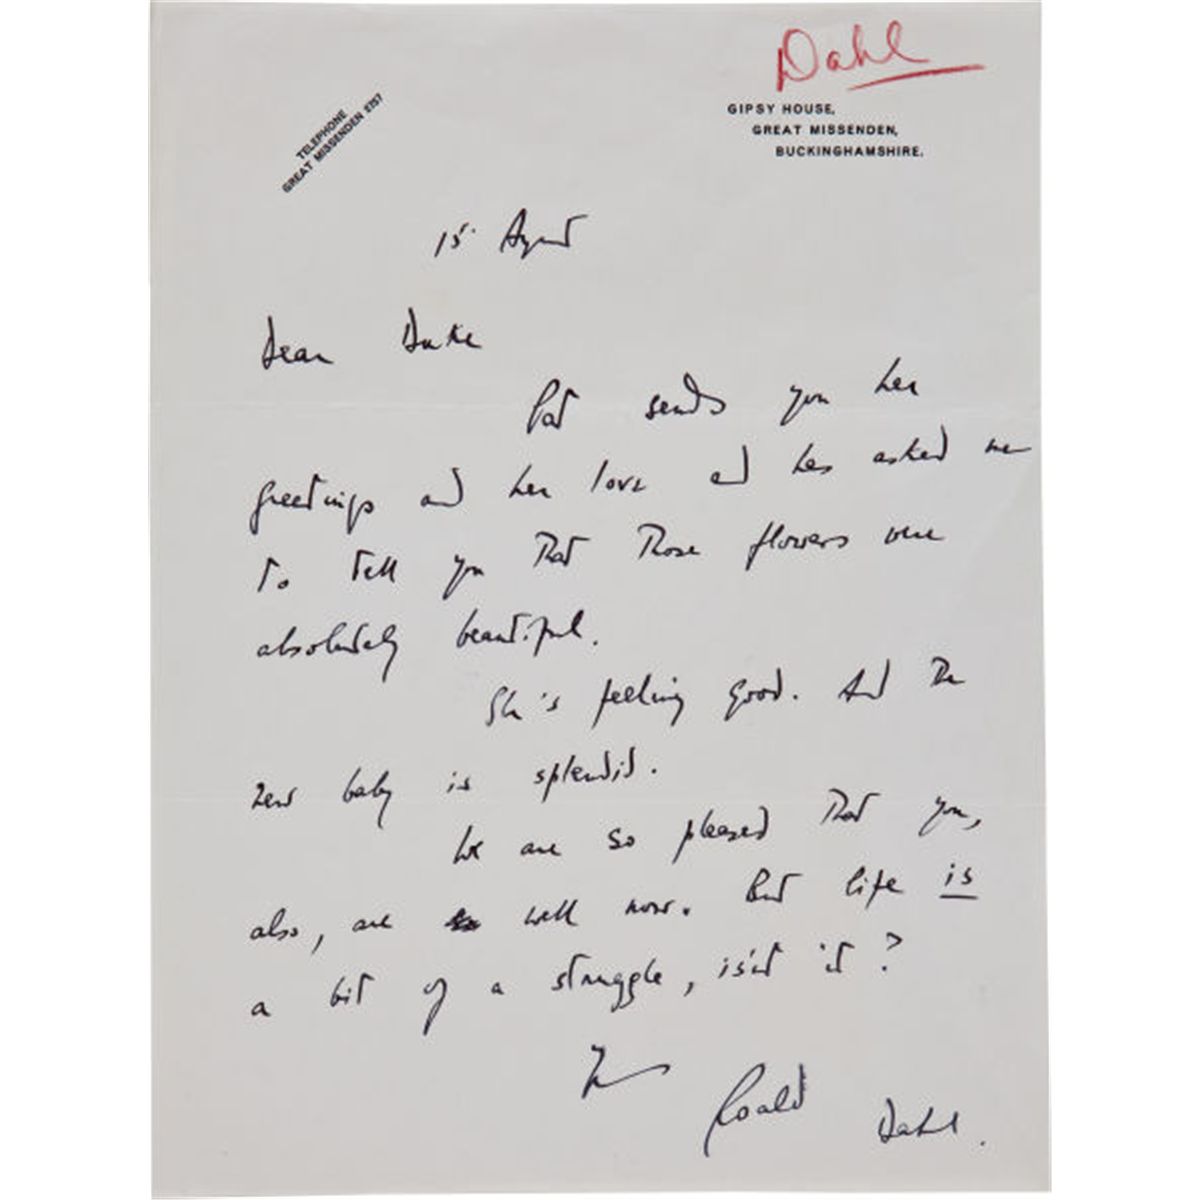 Dahl
TELEPHONE
GREAT MISSENDEN 2757
GIPSY HOUSE,
GREAT MISSENDEN,
BUCKINGHAMSHIRE.
15 August
Dear Duke
Pat sends you her
greetings and her love and has asked me
to tell you that those flowers were
absolutely beautiful.
She's feeling good. And the
new baby is splendid.
We are so pleased that you,
also, are well now. But life is
a bit of a struggle, is'nt it?
Yours
Roald Dahl.